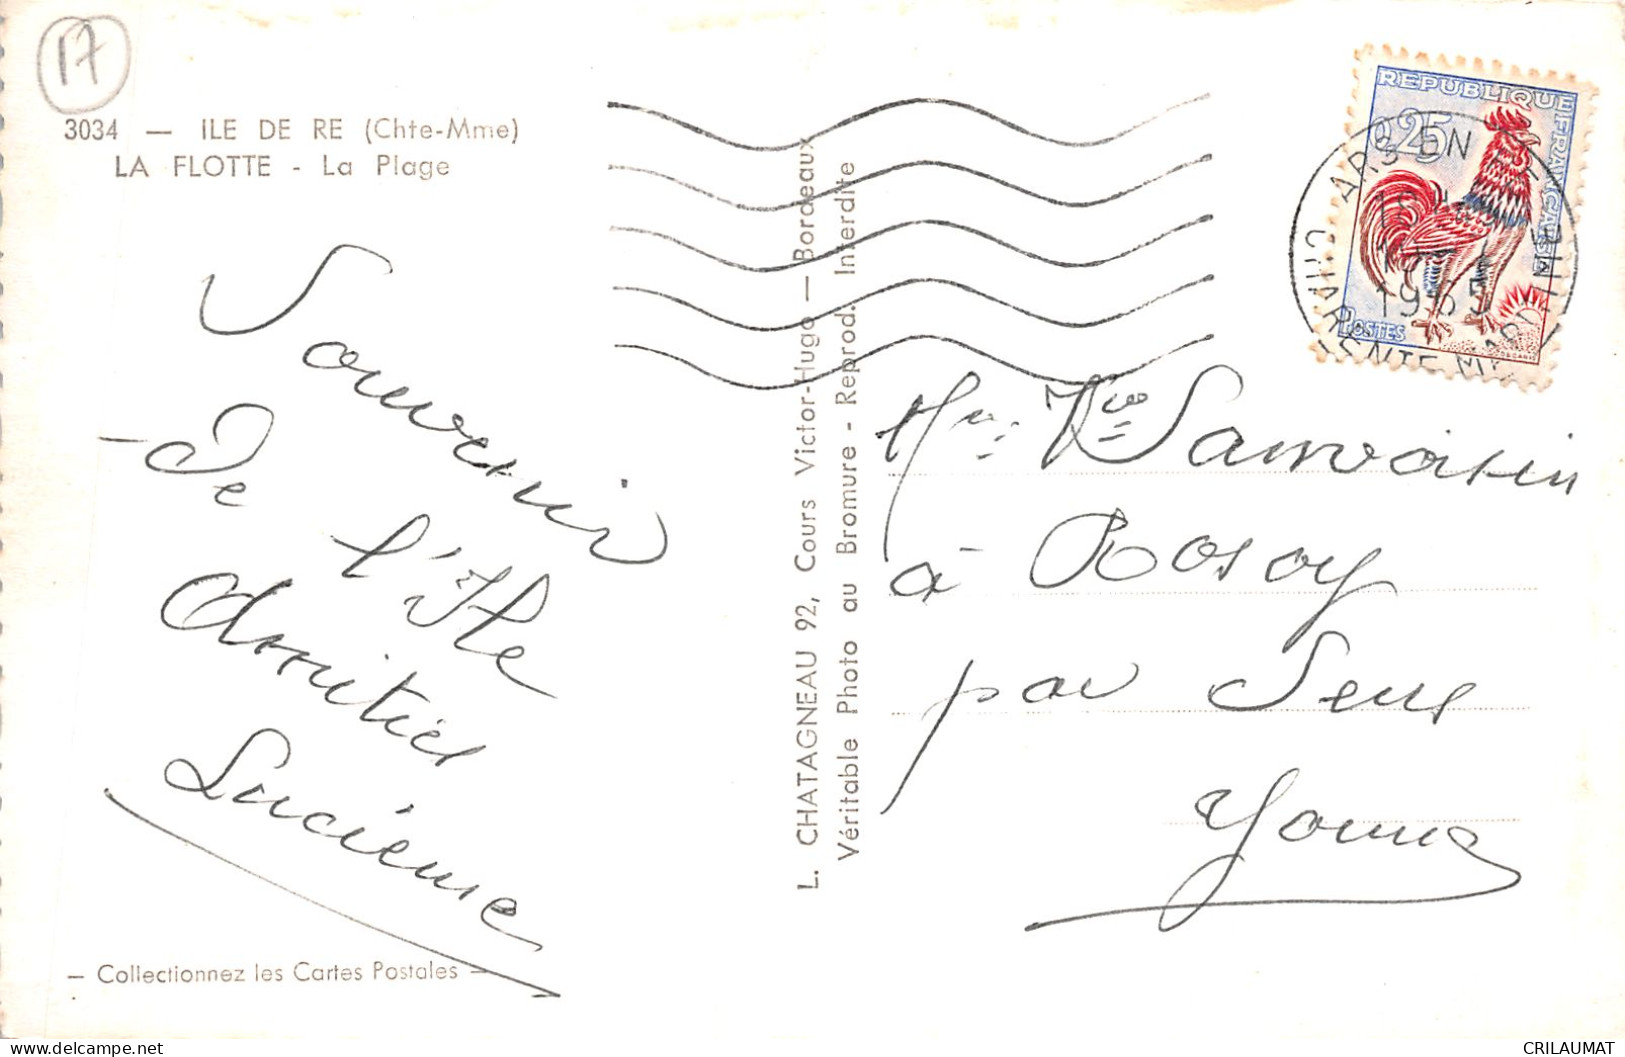 17
3034 — ILE DE RE (Chte-Mme)
LA FLOTTE - La Plage
Souvenir
de
l'Ile
Amitiés
Lucienne
— Collectionnez les Cartes Postales —
L. CHATAGNEAU 92, Cours Victor-Hugo — Bordeaux
Véritable Photo au Bromure - Reprod. Interdite
REPUBLIQUE FRANÇAISE
0,25
POSTES
ARS EN RE
1965
CHARENTE MARITIME
Mme Vve Sauvoisin
à Rosoy
par Sens
Yonne
delcampe.net
CRILAUMAT